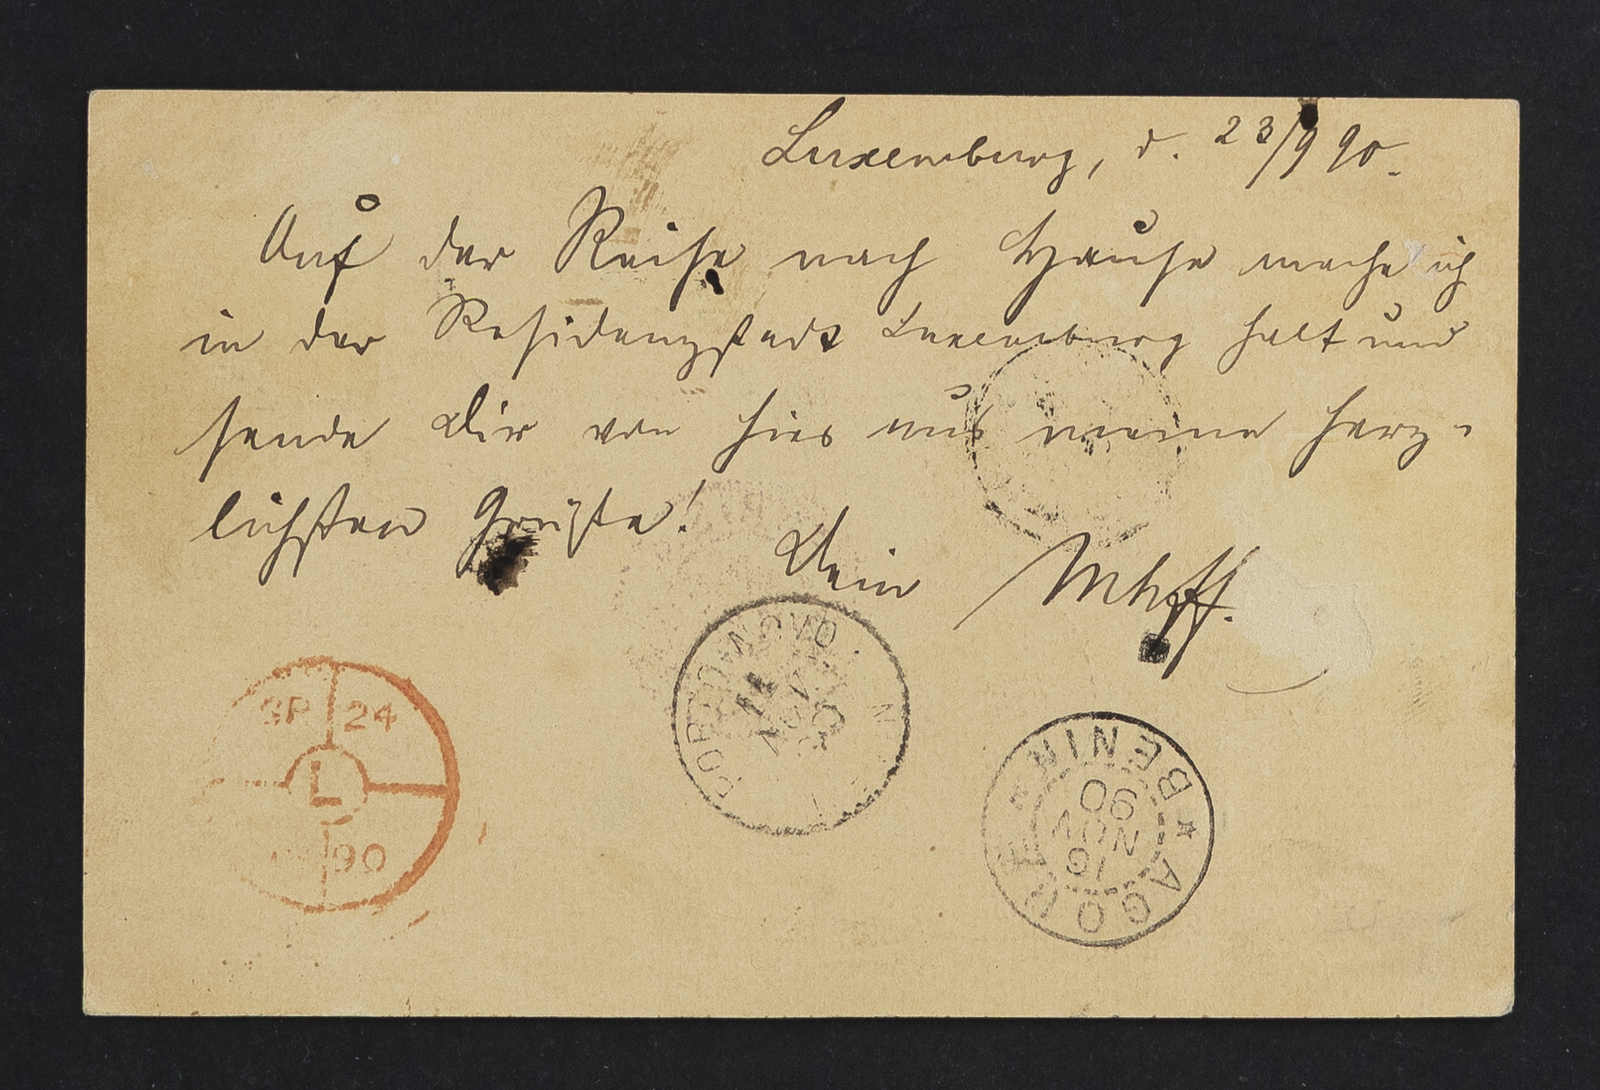 Luxemburg, d. 23/9 90.
Auf der Reise nach Hause mache ich
in der Residenzstadt Luxemburg halt und
sende Dir von hier aus meine herz-
lichsten Grüße!
Dein
SP 24
L
90
PORTO-NOVO
11
NOV
90
BENIN
AGOUE
16
NOV
90